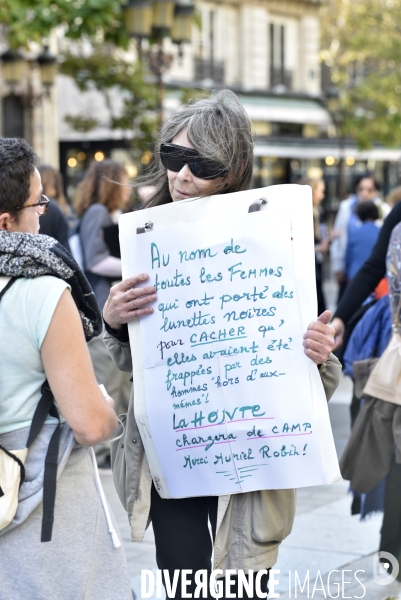 Au nom de
toutes les Femmes
qui ont porté des
lunettes Noires
pour CACHER qu'
elles avaient été
frappées par des
hommes "hors d'eux-
mêmes"!
La HONTE
changera de CAMP
Merci Muriel Robin!
DIVERGENCE IMAGES